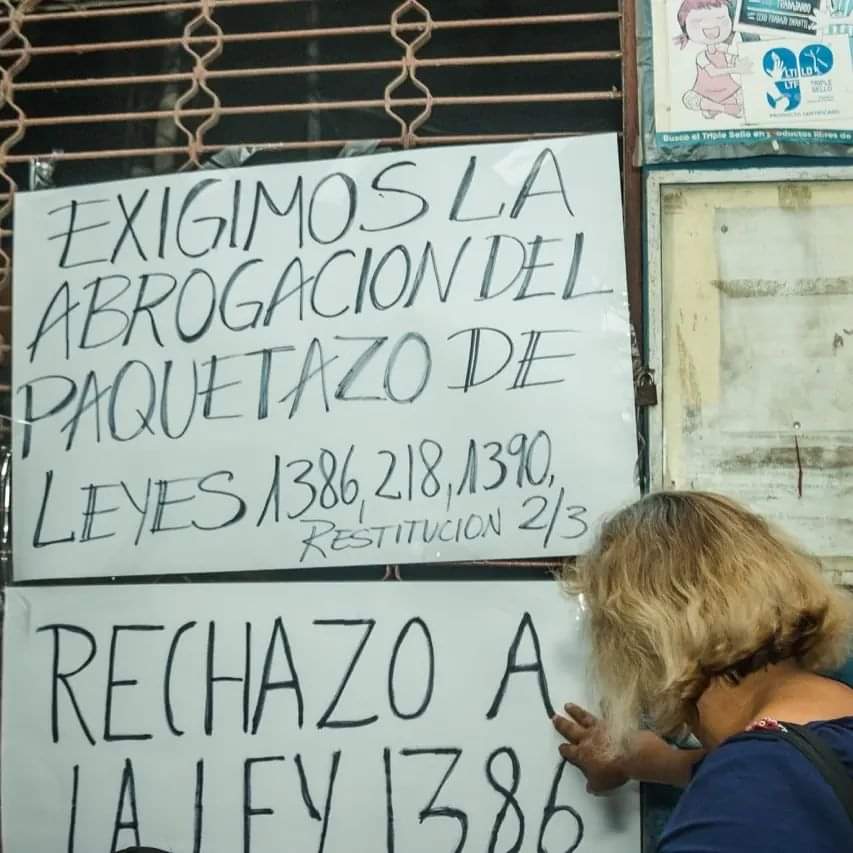 EXIGIMOS LA
ABROGACION DEL
PAQUETAZO DE
LEYES 1386, 218, 1390,
RESTITUCION 2/3
RECHAZO A
LA LEY 1386
TRIPLE
SELLO
PRODUCTO CERTIFICADO
Busca el Triple Sello en
libres de